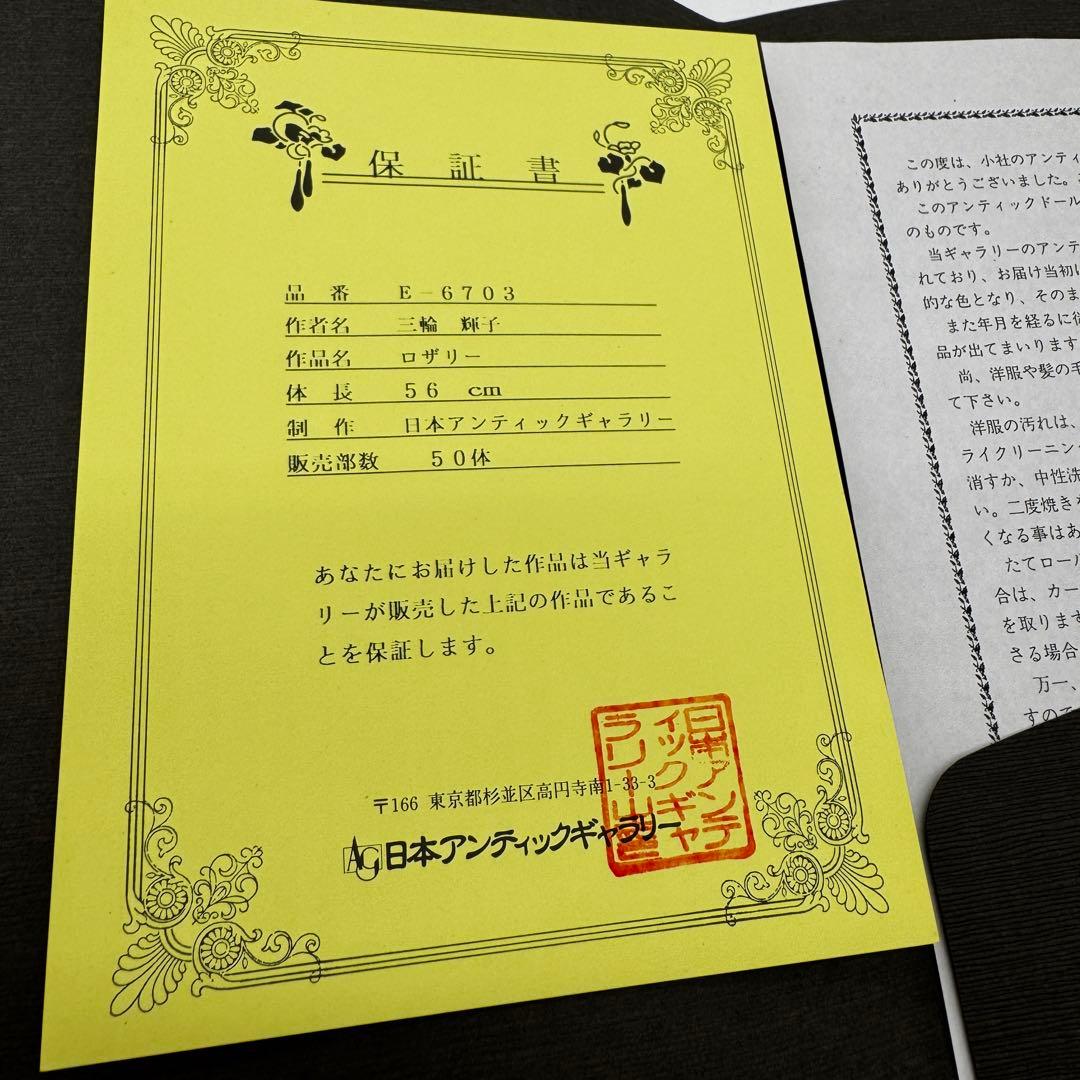 保証書
品　番　E－6703
作者名　三輪　輝子
作品名　ロザリー
体　長　56　cm
制　作　日本アンティックギャラリー
販売部数　50体
あなたにお届けした作品は当ギャラ
リーが販売した上記の作品であるこ
とを保証します。
〒166 東京都杉並区高円寺南1-33-3
AG 日本アンティックギャラリー
日本アンテ
ィックギャ
ラリー
この度は、小社のアンティ
ありがとうございました。
このアンティックドール
のものです。
当ギャラリーのアンテ
れており、お届け当初
的な色となり、そのま
また年月を経るに
品が出てまいります
尚、洋服や髪の毛
て下さい。
洋服の汚れは、
ライクリーニン
消すか、中性洗
い。二度焼き
くなる事はあ
たてロール
合は、カー
を取ります
さる場合
万一、
すので